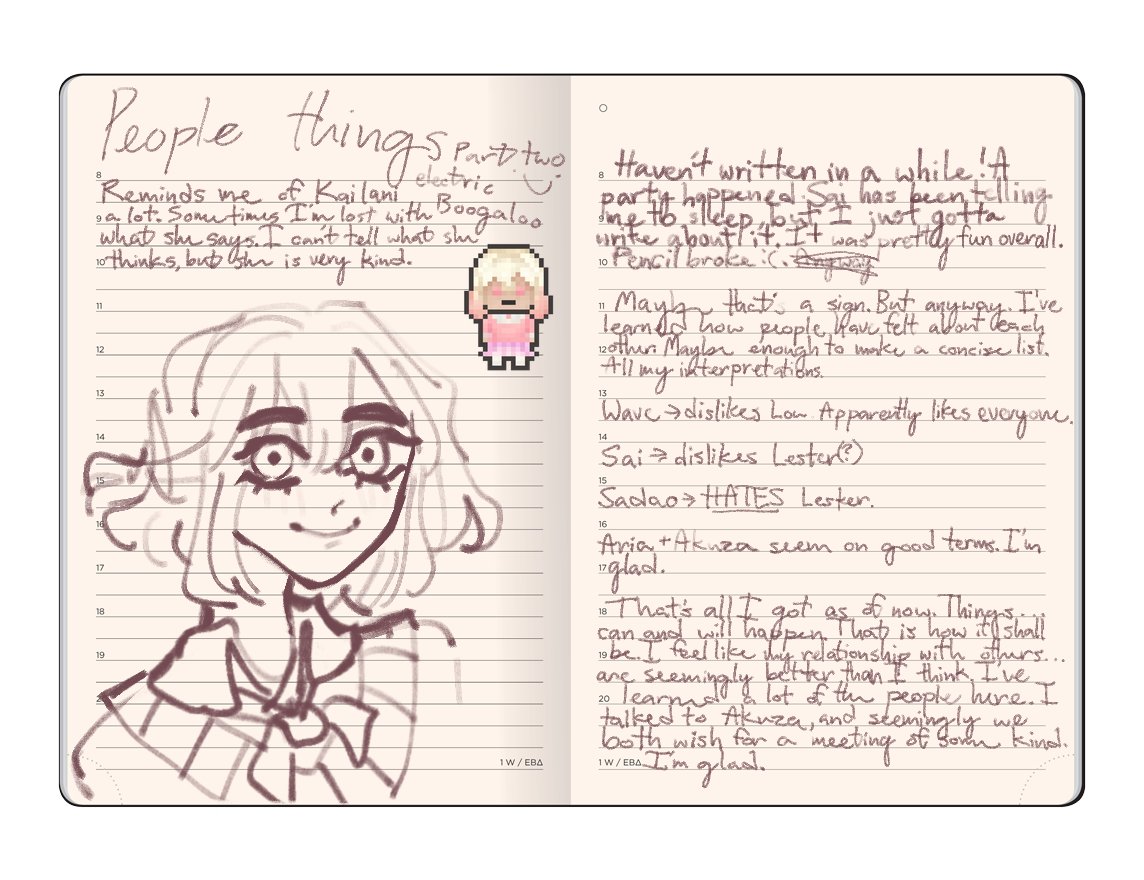 People things Part two
electric
Boogaloo
8
Reminds me of Kailani
9
a lot. Sometimes I'm lost with
what she says. I can't tell what she
10
thinks, but she is very kind.
11
12
13
14
15
16
17
18
19
20
1 W / EBA
8
Haven't written in a while! A
party happened. Sai has been telling
9
me to sleep, but I just gotta
write about it. It was pretty fun overall.
10
Pencil broke :(. Anyway
11
Maybe that's a sign. But anyway. I've
learned how people have felt about each
12
other. Maybe enough to make a concise list.
All my interpretations.
13
Wave → dislikes Low. Apparently likes everyone.
14
Sai → dislikes Lester(?)
15
Sadao → HATES Lester.
16
Aria + Akuza seem on good terms. I'm
17
glad.
18
That's all I got as of now. Things...
can and will happen. That is how it shall
19
be. I feel like my relationship with others...
are seemingly better than I think. I've
20
learned a lot of the people here. I
talked to Akuza, and seemingly we
both wish for a meeting of some kind.
1 W / EBA
I'm glad.